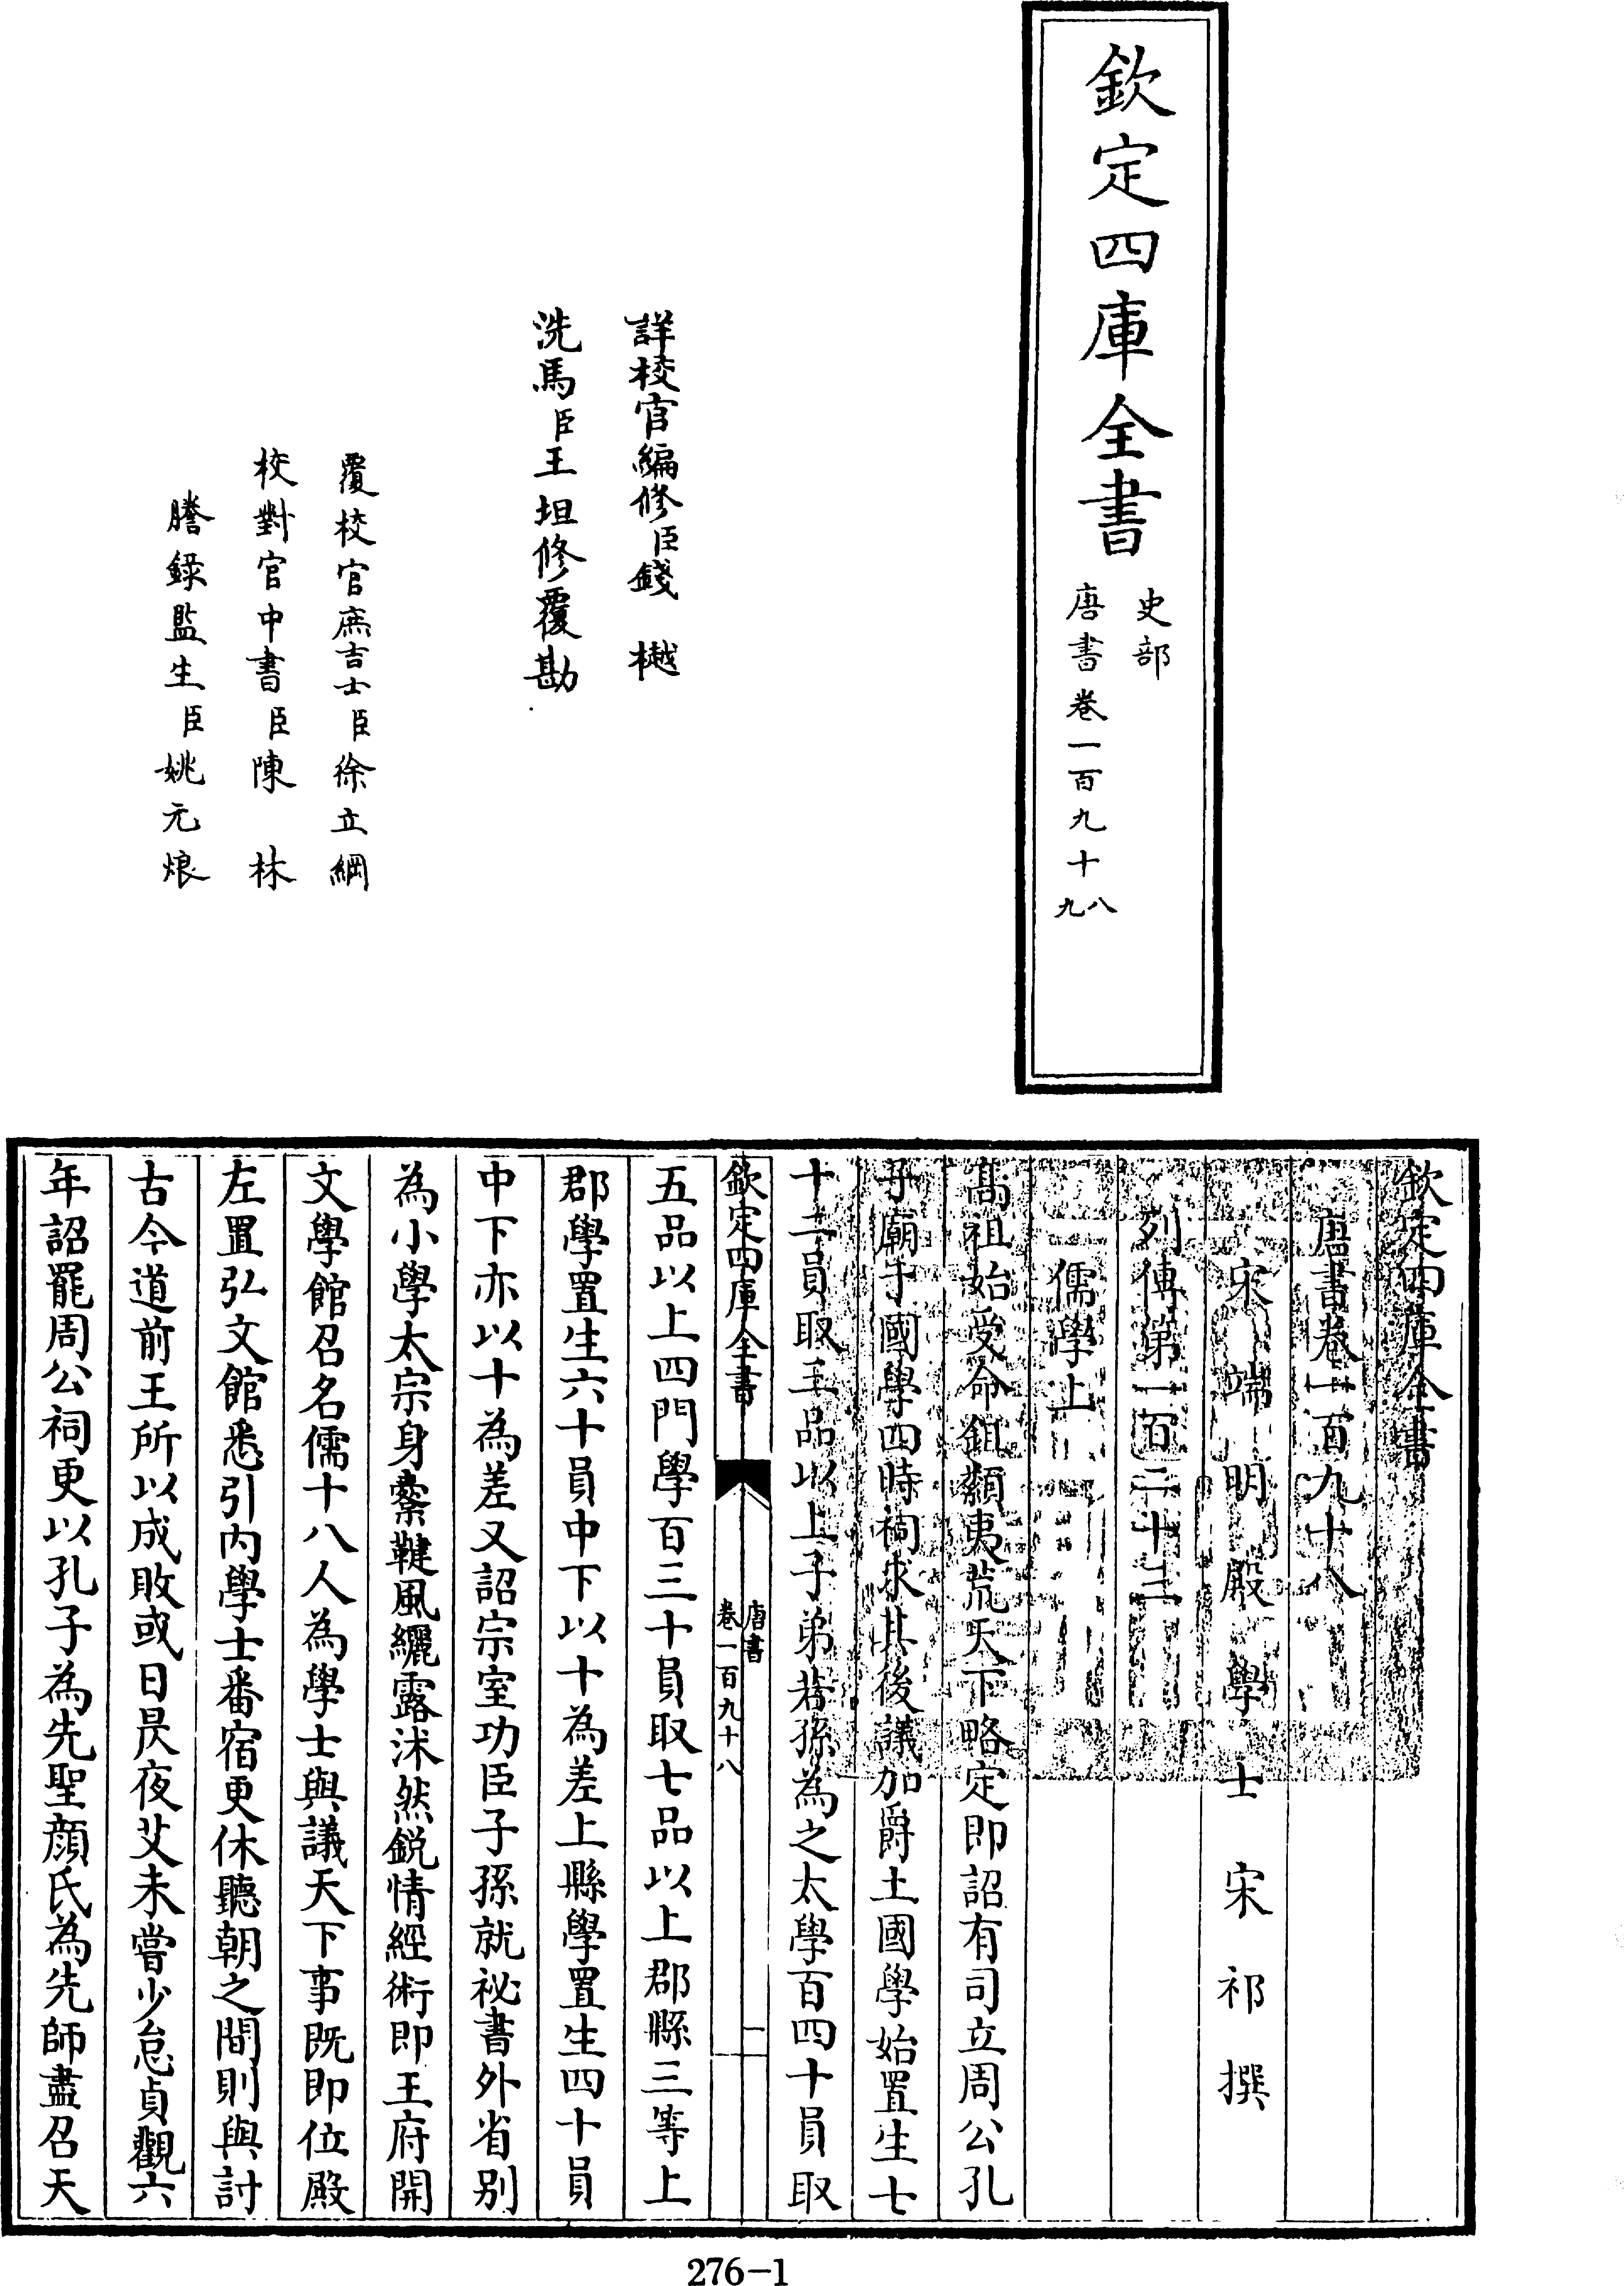 欽定四庫全書
史部
唐書卷一百九十八
九
詳校官編修臣錢樾
洗馬臣王坦修覆勘
覆校官庶吉士臣徐立綱
校對官中書臣陳林
謄錄監生臣姚元烺
欽定四庫全書
唐書卷一百九十八
宋端明殿學士宋祁撰
列傳第一百二十三
儒學上
髙祖始受命鉏纇夷荒天下略定即詔有司立周公孔
子廟于國學四時祠求其後議加爵土國學始置生七
十二員取三品以上子弟若孫為之太學百四十員取
欽定四庫全書
唐書
卷一百九十八
一
五品以上四門學百三十員取七品以上郡縣三等上
郡學置生六十員中下以十為差上縣學置生四十員
中下亦以十為差又詔宗室功臣子孫就祕書外省别
為小學太宗身櫜鞬風纚露沐然鋭情經術即王府開
文學館召名儒十八人為學士與議天下事既即位殿
左置弘文館悉引内學士番宿更休聽朝之間則與討
古今道前王所以成敗或日昃夜艾未嘗少怠貞觀六
年詔罷周公祠更以孔子為先聖顔氏為先師盡召天
276-1